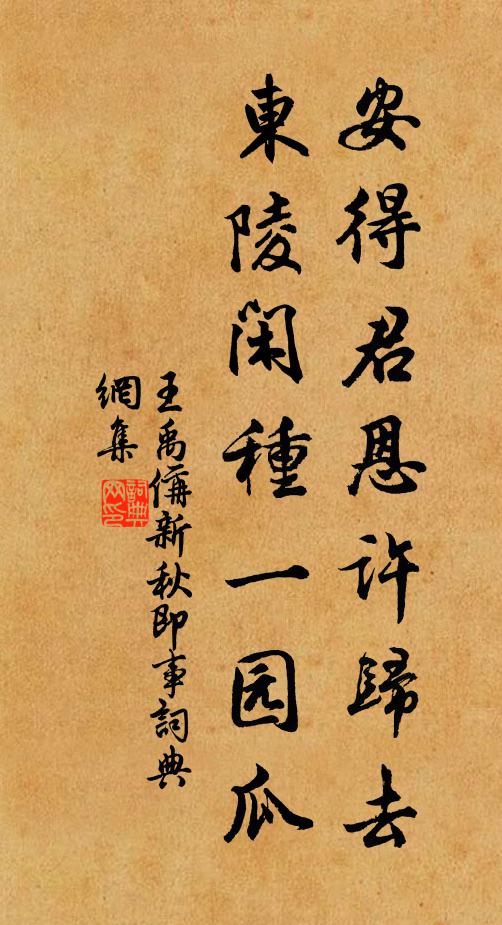 安得君恩許歸去
東陵閑種一园瓜
王禹偁新秋即事詞典
網集
詞典網印